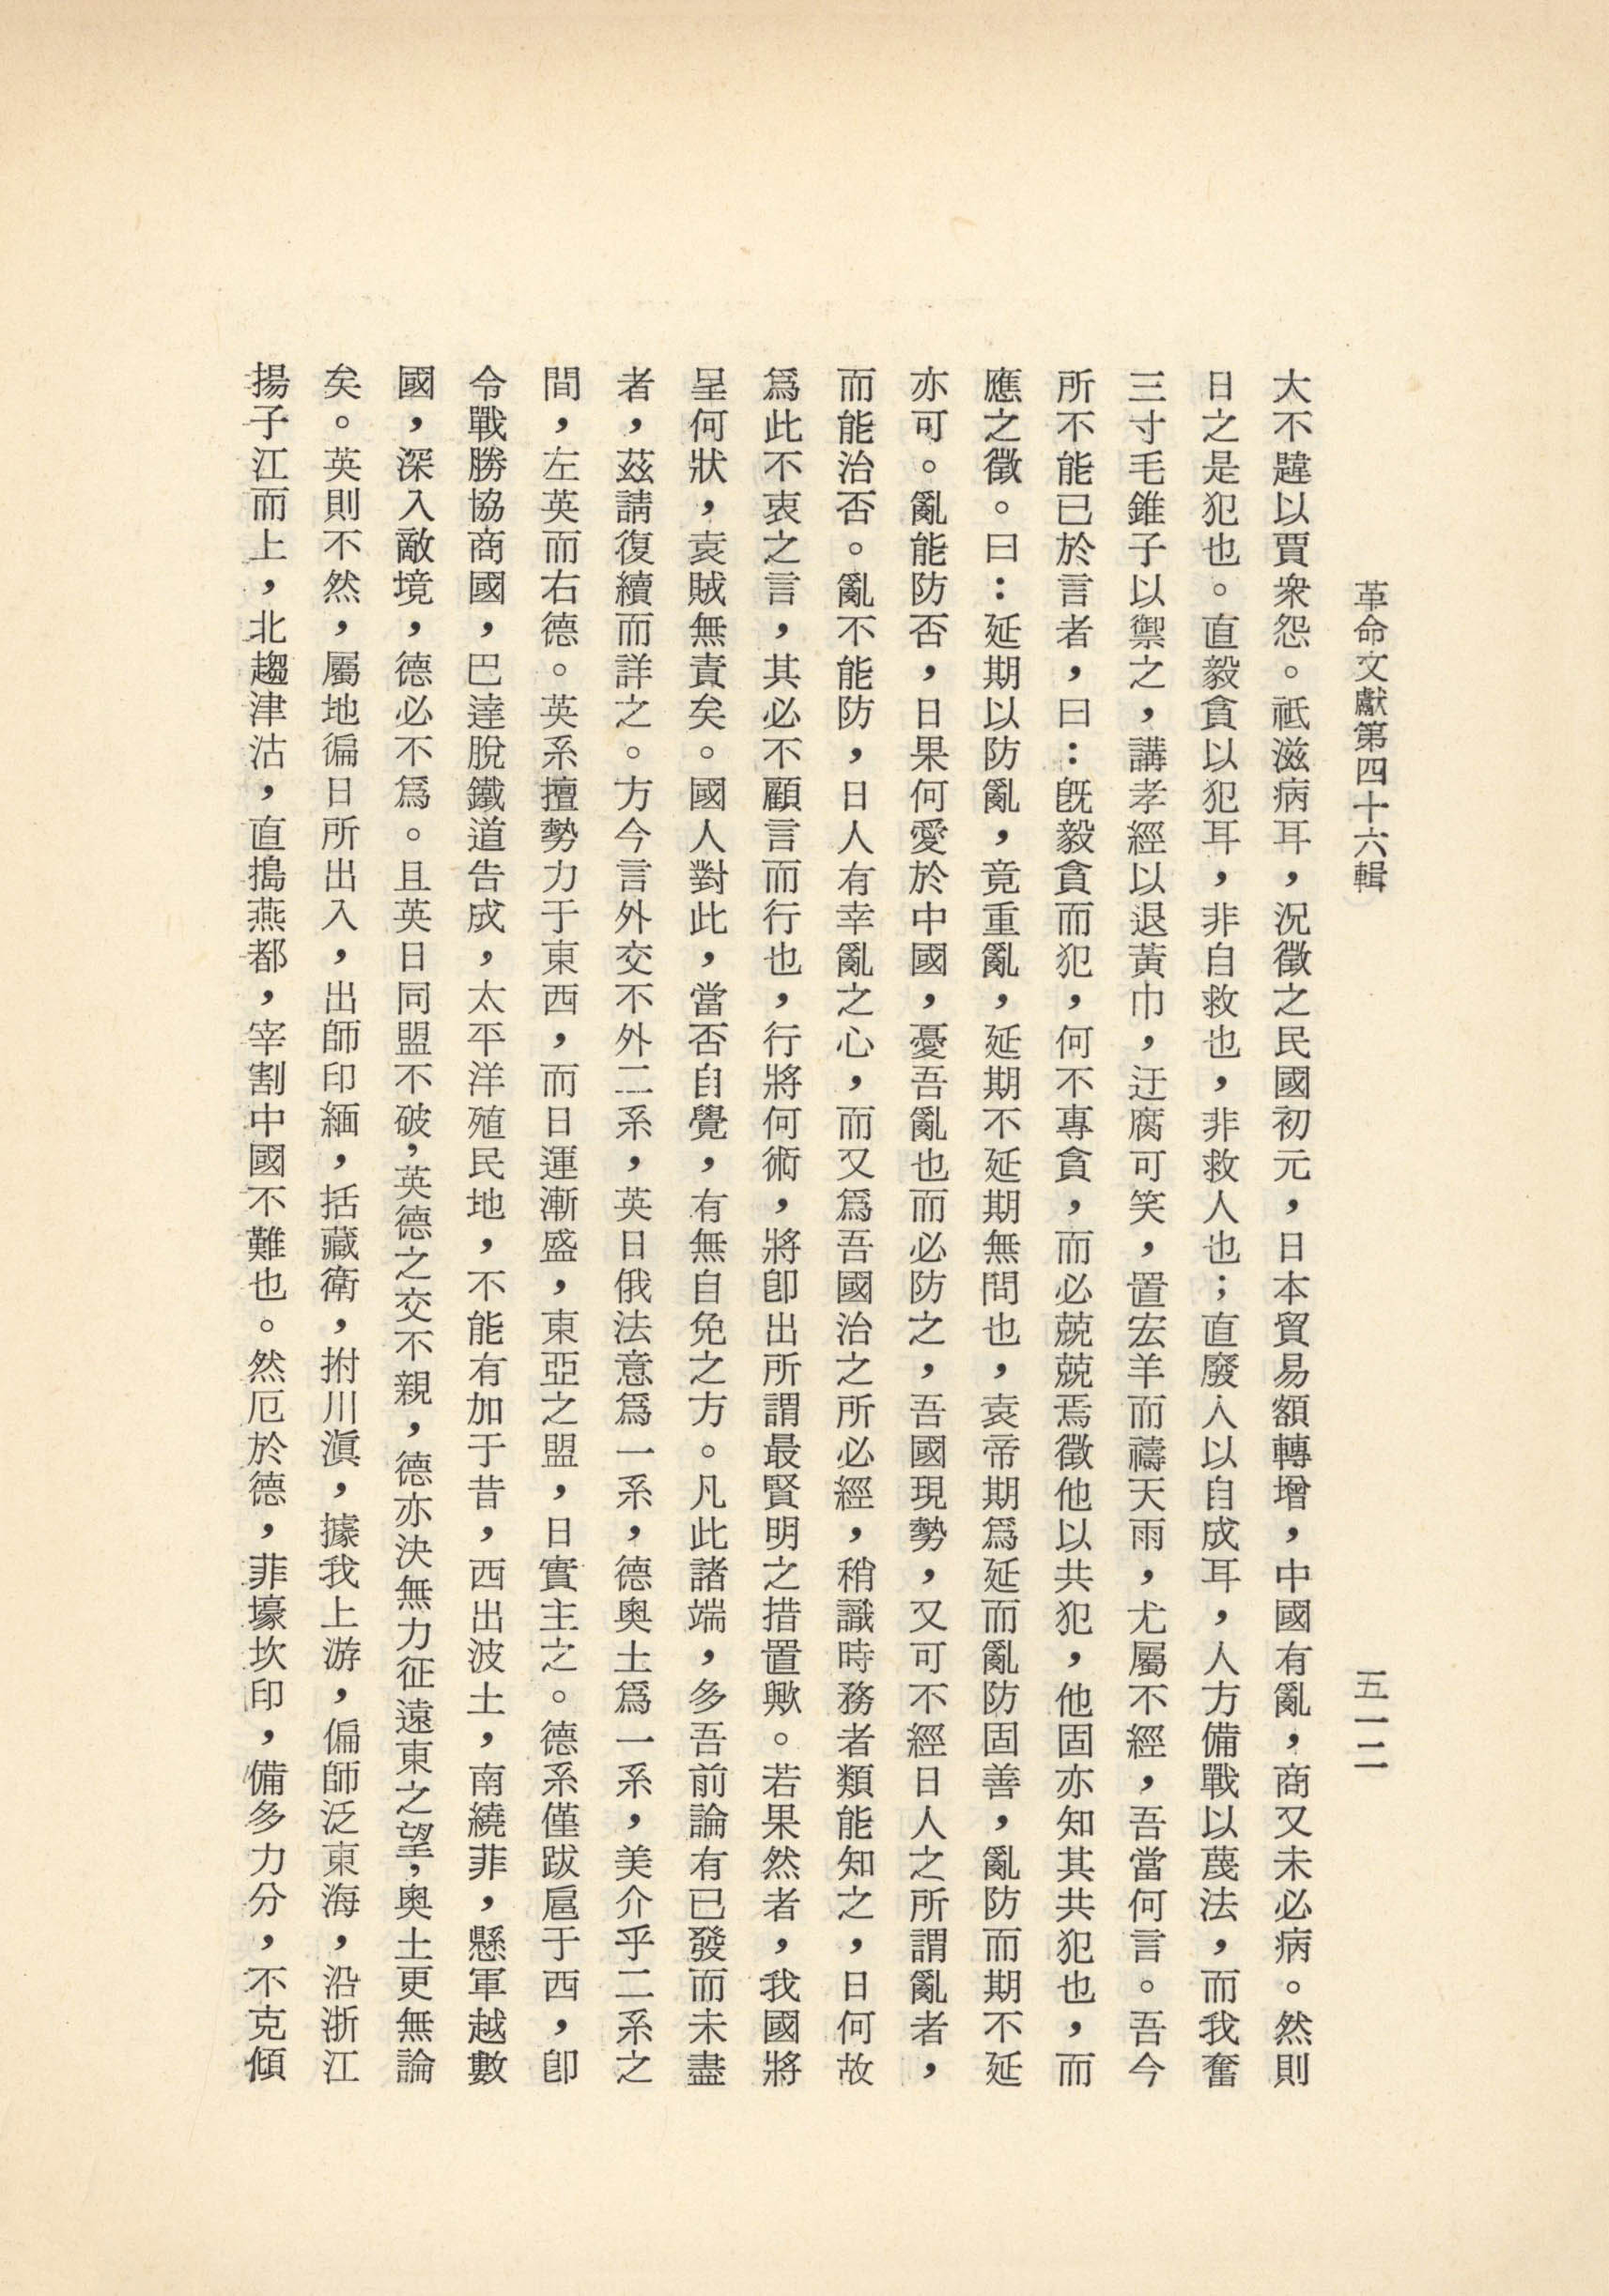 革命文獻第四十六輯
五一二
大不韙以賈衆怨。祇滋病耳，況徵之民國初元，日本貿易額轉增，中國有亂，商又未必病。然則
日之是犯也。直毅貪以犯耳，非自救也，非救人也；直廢人以自成耳，人方備戰以蔑法，而我奮
三寸毛錐子以禦之，講孝經以退黃巾，迂腐可笑，置宏羊而禱天雨，尤屬不經，吾當何言。吾今
所不能已於言者，曰：旣毅貪而犯，何不專貪，而必兢兢焉徵他以共犯，他固亦知其共犯也，而
應之徵。曰：延期以防亂，竟重亂，延期不延期無問也，袁帝期爲延而亂防固善，亂防而期不延
亦可。亂能防否，日果何愛於中國，憂吾亂也而必防之，吾國現勢，又可不經日人之所謂亂者，
而能治否。亂不能防，日人有幸亂之心，而又爲吾國治之所必經，稍識時務者類能知之，日何故
爲此不衷之言，其必不顧言而行也，行將何術，將卽出所謂最賢明之措置歟。若果然者，我國將
呈何狀，袁賊無責矣。國人對此，當否自覺，有無自免之方。凡此諸端，多吾前論有已發而未盡
者，茲請復續而詳之。方今言外交不外二系，英日俄法意爲一系，德奧土爲一系，美介乎二系之
間，左英而右德。英系擅勢力于東西，而日運漸盛，東亞之盟，日實主之。德系僅跋扈于西，卽
令戰勝協商國，巴達脫鐵道告成，太平洋殖民地，不能有加于昔，西出波土，南繞菲，懸軍越數
國，深入敵境，德必不爲。且英日同盟不破，英德之交不親，德亦決無力征遠東之望，奧土更無論
矣。英則不然，屬地徧日所出入，出師印緬，括藏衛，拊川滇，據我上游，偏師泛東海，沿浙江
揚子江而上，北趨津沽，直搗燕都，宰割中國不難也。然厄於德，菲壕坎印，備多力分，不克傾